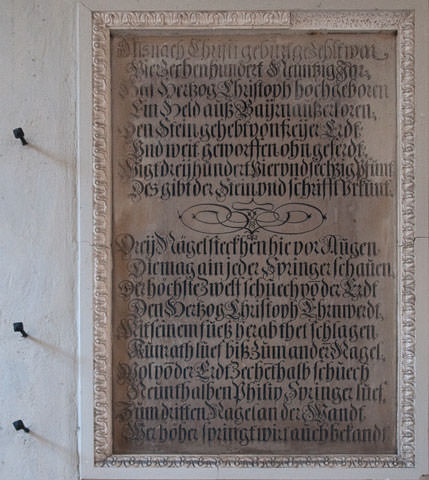 Als nach Christi geburt gezehlt war
Vierzechenhundert Neuntzig Jar,
Hat Hertzog Christoph hochgeboren
Ein Held auß Bayrn außerkoren,
Den Stein gehebt von freyer Erdt
Und weit geworffen ohn geferdt,
Wigt dreyhundert vier und sechzig Pfunt,
Des gibt der Stein und schrifft Urkunt.
Dreij Nägel steckhen hie vor Augen
Die mag ain jeder Springer schauen,
Der höchste zwelf schuech vo der Erdt
Den Hertzog Christoph Ehrnwerdt,
Mit seinem fueß herab thet schlagen.
Kunrath luef biß zum ander Nagel,
Wol vo der Erdt zechethalb schuech
Neunthalben Philip Springer luef,
Zum dritten Nagel an der Wandt.
Wer höher springt wirt auch bekandt